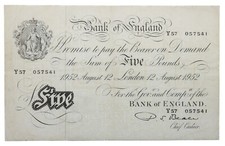 Bank of England
Y57 057541
Promise to pay the Bearer on Demand
the Sum of Five Pounds
Y57 057541
1952 August 12 London 12 August 1952
For the Govr. and Compa. of the
Five
BANK OF ENGLAND.
P S Beale
Chief Cashier